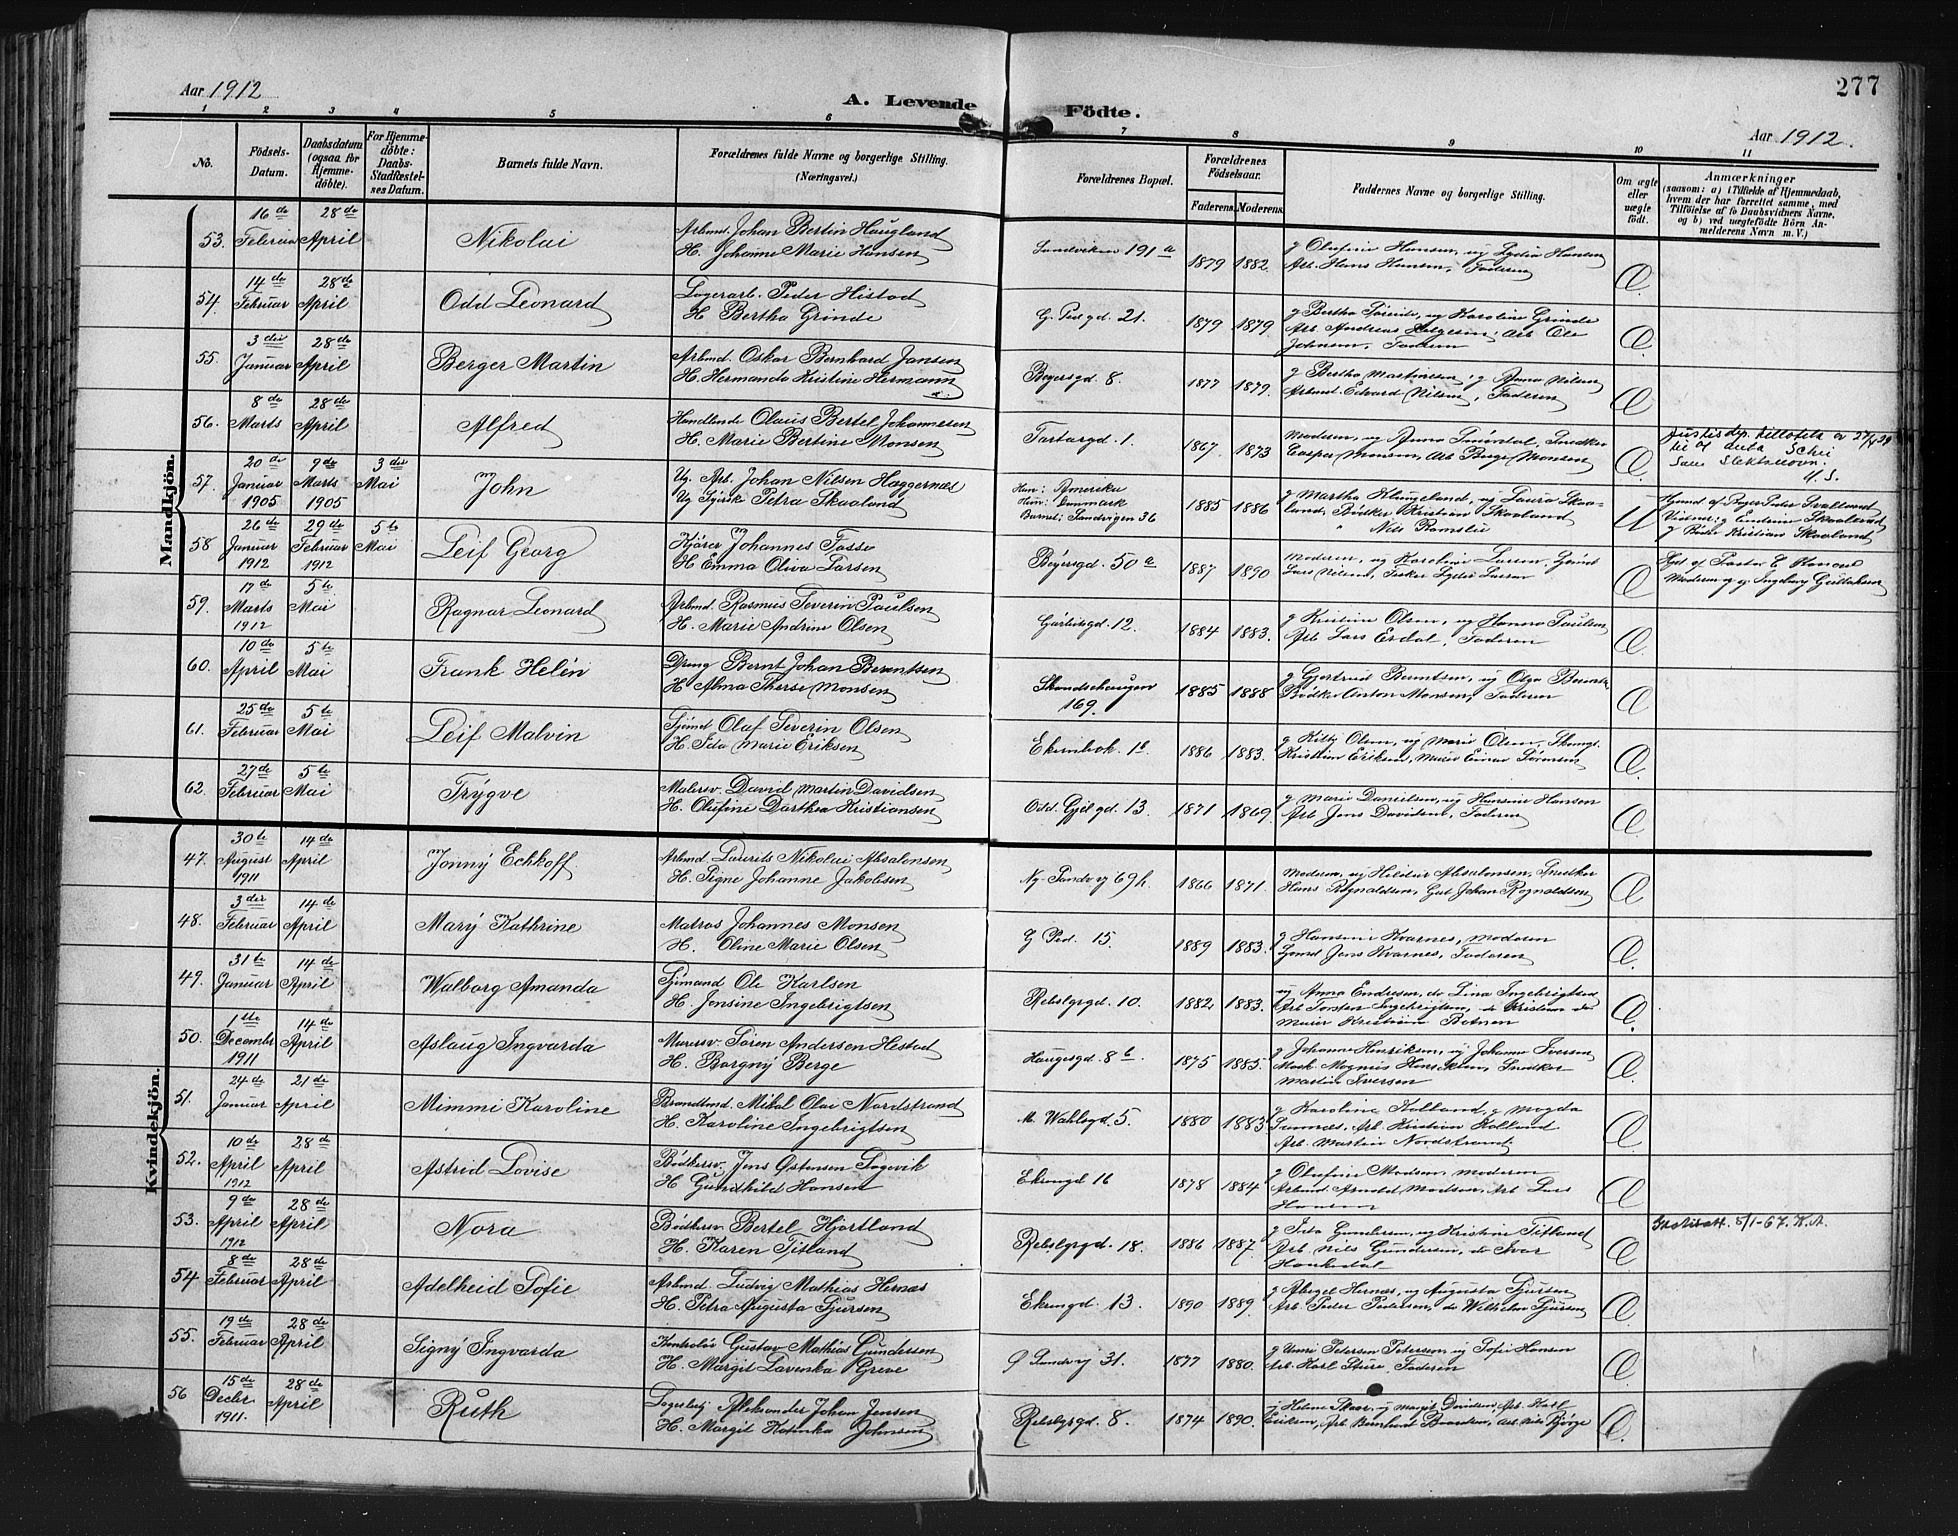 277
Aar 1912
A. Levende
Födte.
Aar 1912.
1 2 3 4 5 6 7 8 9 10 11
No.
Födsels-Datum.
Daabsdatum (ogsaa for Hjemmedöbte).
For Hjemmedöbte: Daabs-Stadfæstelses Datum.
Barnets fulde Navn.
Forældrenes fulde Navne og borgerlige Stilling.
(Næringsvei.)
Forældrenes Bopæl.
Forældrenes Födselsaar.
Faderens. Moderens.
Faddernes Navne og borgerlige Stilling.
Om ægte eller uægte födt.
Anmærkninger
(saasom: a) i Tilfælde af Hjemmedaab, hvem der har forrettet samme, med Tilföielse af to Daabsvidners Navne, og b) ved uægtefödte Börn Anmelderens Navn m. V.)
Mandkjön.
53. 16de Februar 28de April Nikolai Arbmd. Johan Bertin Haugland
H. Johanne Marie Hansen Sandviken 191a 1879 1882. g Olufine Hansen, ug Lydia Hansen
Arb. Hans Hansen, Faderen Æ
54. 14de Februar 28de April Odd Leonard Lagerarb. Peder Histad
H Bertha Grinde G. Ped gd. 21. 1879 1879. g Bertha, ug Karoline Grinde
Arb. Andreas Helgesen, Arb Ole
Johnsen, Faderen Æ
55. 3die Januar 28de April Berger Martin Arbmd. Oskar Bernhard Jansen
H. Hermande Kristine Hermann Beyersgd. 8. 1877 1879. g Bertha Martinsen, g Anna Nilsen
Arbmd. Edvard Nilsen, Faderen Æ
56. 8de Marts 28de April Alfred Handlende Olaus Bertel Johannesen
H. Marie Bertine Monsen Tartargd. 1. 1867. 1873 Moderen, ug Anna, Snedker
Casper Monsen, Arb Børge Monsen Æ Justisdp. tillatels av 27/4 29
til at Schei
Slektsnavn.
57. 20de Januar 1905 9de Marts 1905 3die Mai John Ug. Arb. Johan Nilsen Haggernæs
Ug Syersk Petra Skaaland Han: Amerika
Hun: Danmark
Barnet: Sandvigen 36 1885 1886 g Martha Klungeland, ug Laura Skaaland, Bødker Kristian Skaaland
Nils Ramslie U
Vidner: g Skaaland
g Bøder Kristian Skaaland
58 26de Januar 1912 29de Februar 1912 5te Mai Leif Georg Kjører Johannes Fasse
H Emma Oliva Larsen Beyersgd. 50a 1887 1890 Moderen, ug Karoline Larsen, Sømd
Lars Nilsen, Fisker Lyder Larsen Æ af Pastor E
Moderen og g Ingeborg
59. 17de Marts 1912 5te Mai Ragnar Leonard Arbmd. Rasmus Severin Paulsen
H. Marie Andrine Olsen 12. 1884 1883. g Kristine Olsen, ug Hanna Paulsen
Arb Lars Erdal, Faderen Æ
60. 10de April 5te Mai Frank Helén Dreng Bernt Johan Berentsen
H Alma Therse Monsen Skandsehaugen
169. 1885 1888 g Gjertrud Berentsen, ug Olga
Bødker Anton Monsen, Faderen Æ
61. 25de Februar 5te Mai Leif Malvin Sjømd Olaf Severin Olsen
H. Ida Marie Eriksen Ekrenbak. 1b 1886 1883. g Kitty Olsen, ug Marie Olsen,
Kristian Eriksen, Murer Einar Sørensen Æ
62. 27de Februar 5te Mai Trygve Malersv. David Martin Davidsen
H. Olufine Dorthea Kristiansen Odd. Gjel gd. 13. 1871 1869. g Marie Danielsen, ug Hansine Hansen
Arb Jens Davidsen, Faderen Æ
Kvindekjön.
47. 30te August 1911 14de April Jonny Echkoff Arbmd. Laurits Nikolai Absalonsen
H. Signe Johanne Jakobsen Ny. Sandvg 69h. 1866 1871. Moderen, ug Hildur Absalonsen, Snedker
Hans Reynoldsen, Gut Johan Rognaldsen Æ
48. 3die Februar 14de April Mary Kathrine Matros Johannes Monsen
H. Oline Marie Olsen G Ped. 15. 1889 1883. g Hansine Kvarnes, Moderen
Sømd Jens Kvarnes, Faderen Æ
49. 31te Januar 14de April Walborg Amanda Sjømand Ole Karlsen
H. Jensine Ingebrigtsen Rebslgrgd. 10. 1882 1883. ug Anna Endresen, do Lina Ingebrigtsen
Arb Torsten Ingebrigtsen, do Kristian do
Murer Kristian Botnen Æ
50. 1ste Decembr 1911 14de April Aslaug Ingvarda Murersv. Søren Andersen Hestad
H. Borgny Berge Haugesgd. 8b. 1875 1885. g Johanne Henriksen, ug Johanne Iversen
Mask. Magnus Henriksen, Snedker
Martin Iversen Æ
51. 24de Januar 21de April Mimmi Karoline Brandtmd. Mikal Olai Nordstrand
H. Karoline Ingebrigtsen M. Wahlsgd. 5. 1880 1883 g Karoline Kolland, g Magda
Sannæs, Arb. Kristian Kolland
Arb. Martin Nordstrand Æ
52. 10de April 1912 28de April Astrid Lovise Bødkersv. Jens Østensen Sogevik
H. Gundhild Hansen Ekrengd 16 1878 1884 g Olufine Madsen, Moderen
Arbmd. Arnold Madsen, Arb Lars
Hansen Æ
53. 9de April 1912 28de April Nora Bødkersv. Bertel Hjortland
H. Karen Titland Rebslgrgd. 18. 1886 1887. g Ida Gundersen, ug Kristine Titland
Arb. Nils Gundersen, do Ivar
Haukedal Æ 5/1-67. K.A.
54 8de Februar 28de April Adelheid Sofie Arbmd. Ludvig Mathias Hernæs
H. Petra Augusta Sjursen Ekrengd. 13. 1890 1889. g Abigel Hernæs, ug Augusta Sjursen
Arb. Peder Pedersen, do Wilhelm Sjursen Æ
55. 19de Februar 28de April Signy Ingvarda Kontrolør Gustav Mathias Gundersen
H. Margit Lavenka Greve Ø Sandvg 31. 1877 1880. g Petersen ug Sofie Hansen
Arb. Karl Sture, Faderen Æ
56 15de Decbr 1911. 28de April Ruth Aleksander Johan Jensen
H. Margit Katinka Johnsen Rebslgrgd. 8. 1874 1890. ug Helene Skaar, ug Margit Davidsen, Arb. Karl
Eriksen, Arb. Bernhard, Arb. Nils Bjørge Æ